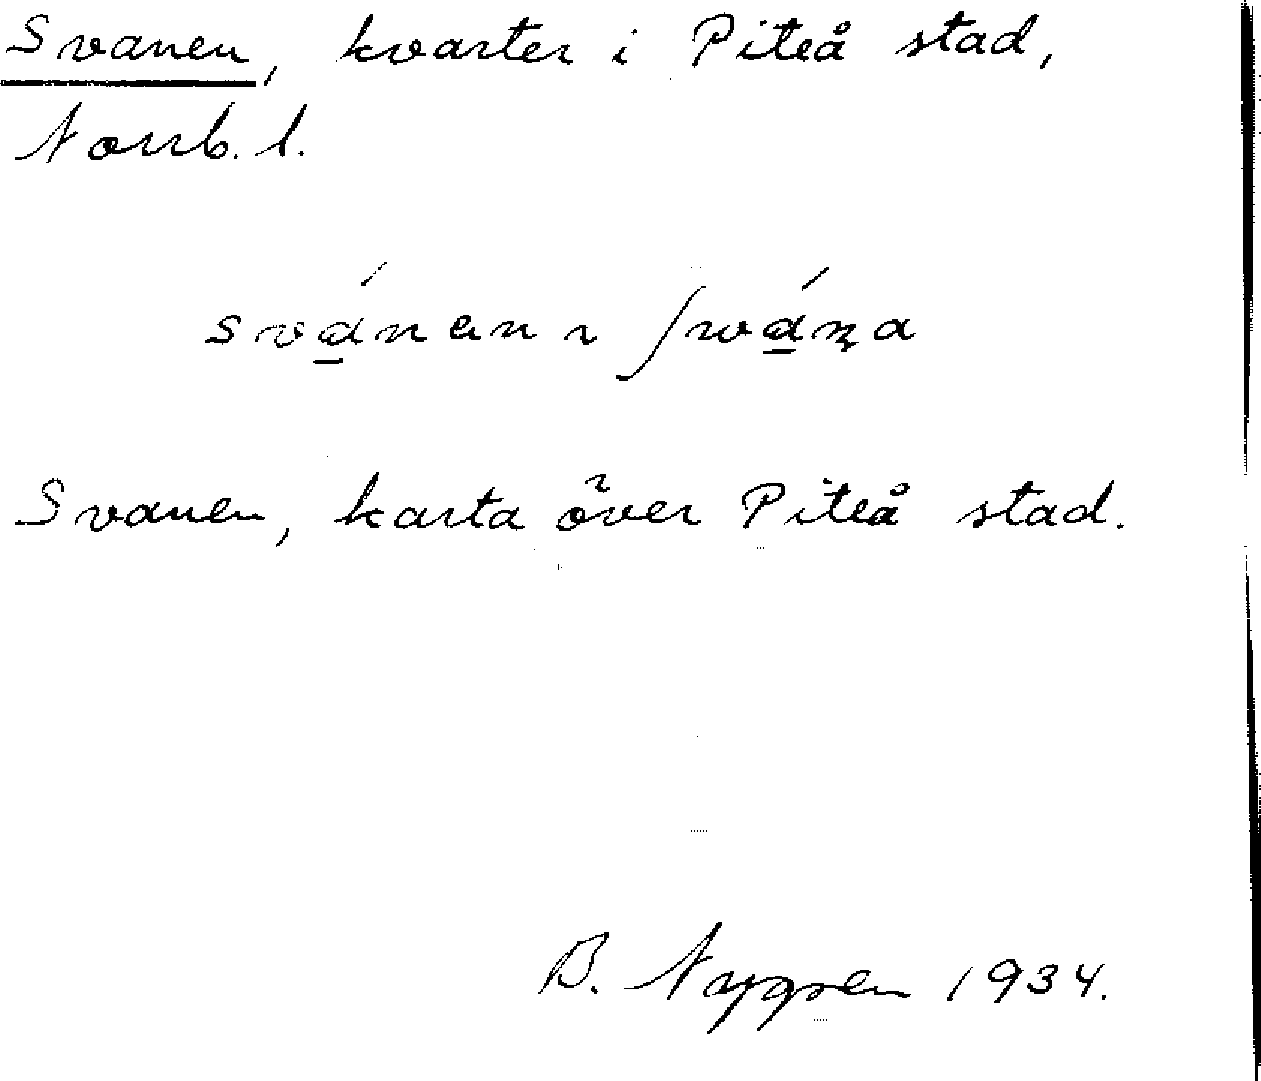 Svanen, kvarter i Piteå stad,
Norrb. l.
svánen ı ʃwán̡a
Svanen, karta över Piteå stad.
B. Nygren 1934.